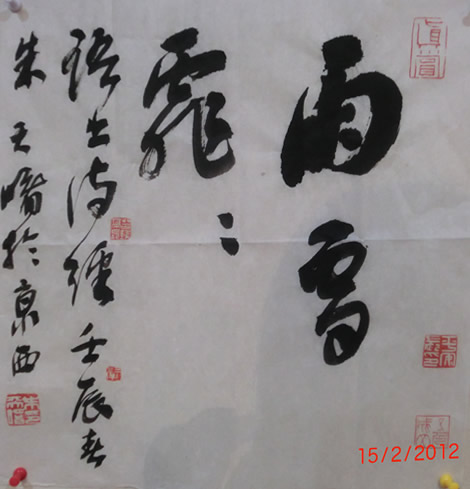 雨雪
霏〻
語出詩經壬辰春
朱天曙於京西
15/2/2012